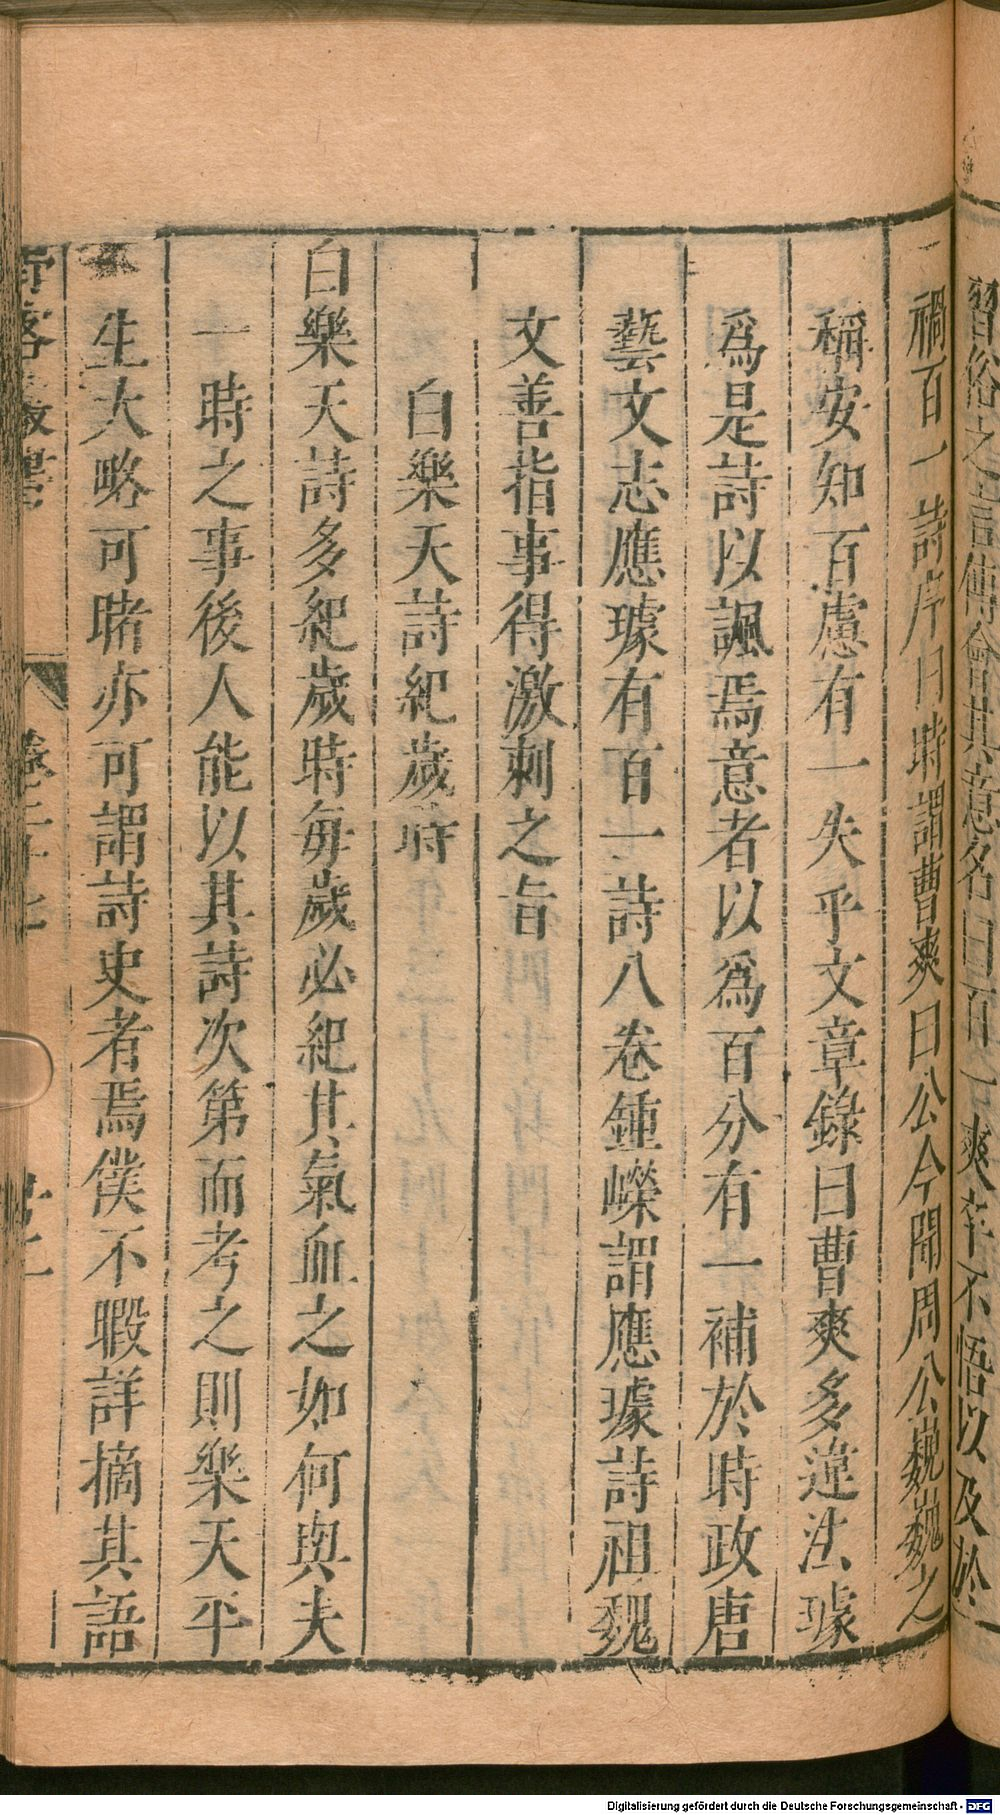 習俗之言傅會其意名曰百一爽卒不悟以及於
禍百一詩序曰時謂曹爽曰公今聞周公巍巍之
稱安知百慮有一失乎文章錄曰曹爽多違法璩
爲是詩以諷焉意者以爲百分有一補於時政唐
藝文志應璩有百一詩八卷鍾嶸謂應璩詩祖魏
文善指事得激刺之旨
白樂天詩紀歲時
白樂天詩多紀歲時每歲必紀其氣血之如何與夫
一時之事後人能以其詩次第而考之則樂天平
生大略可睹亦可謂詩史者焉僕不暇詳摘其語
卷二十七
Digitalisierung gefördert durch die Deutsche Forschungsgemeinschaft - DFG